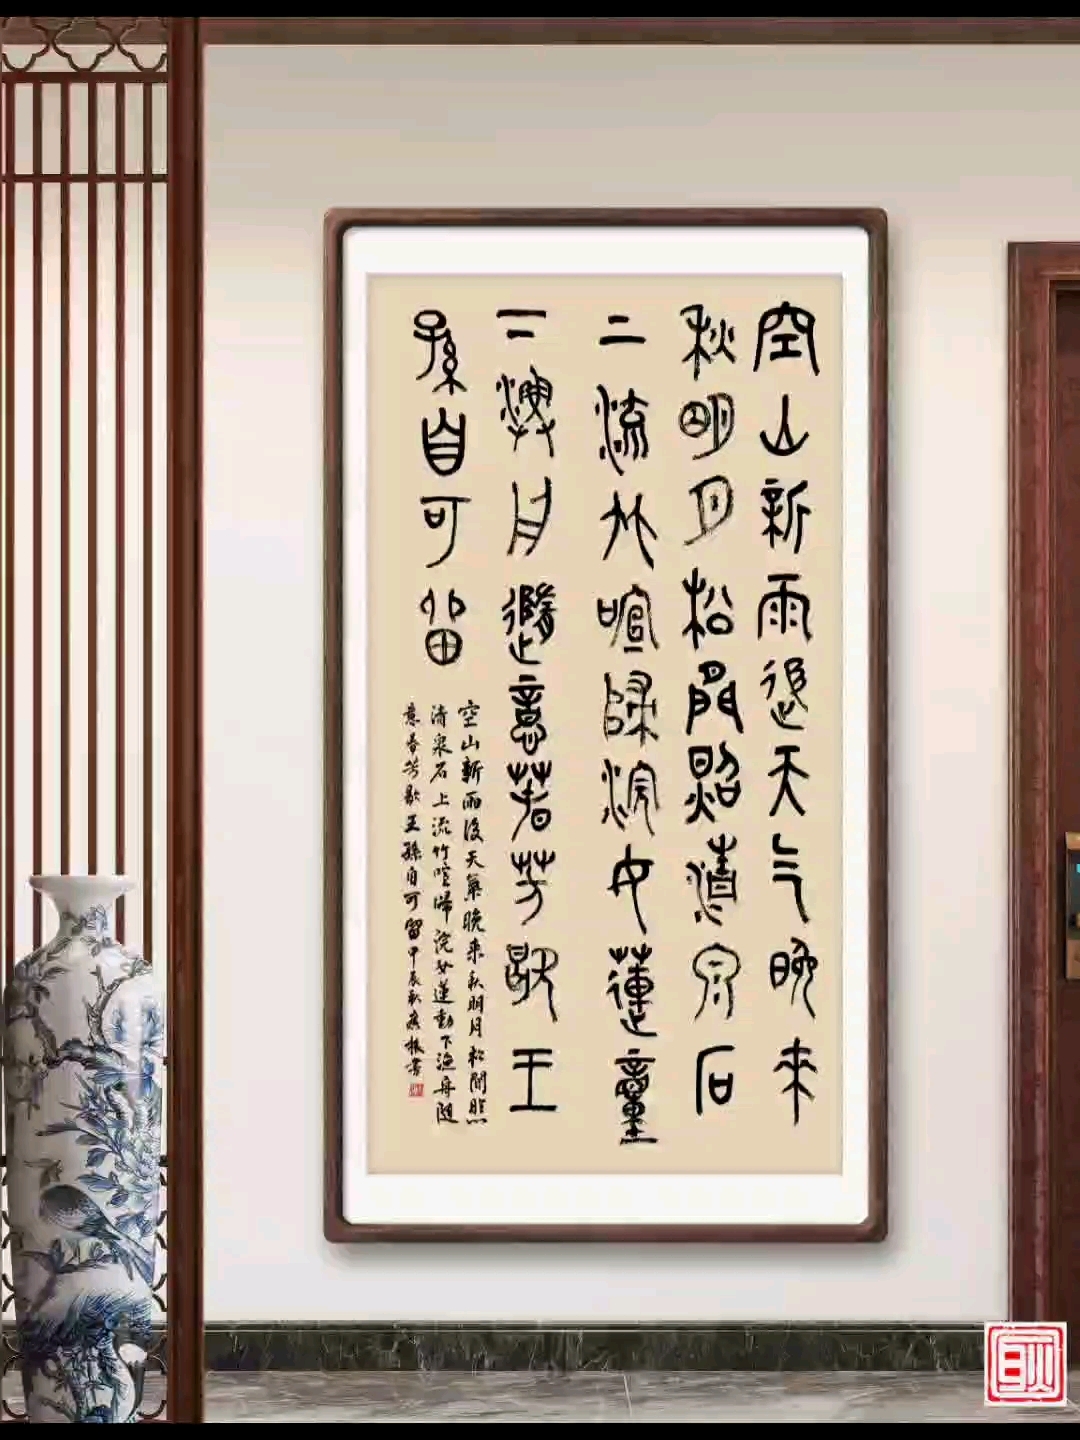 空山新雨後天气晚來
秋明月松間照清泉石
上流竹喧歸浣女蓮動
下漁舟隨意春芳歇王
孫自可留
空山新雨後天氣晚来秋明月松間照
清泉石上流竹喧歸浣女蓮動下漁舟隨
意春芳歇王孫自可留甲辰秋根書